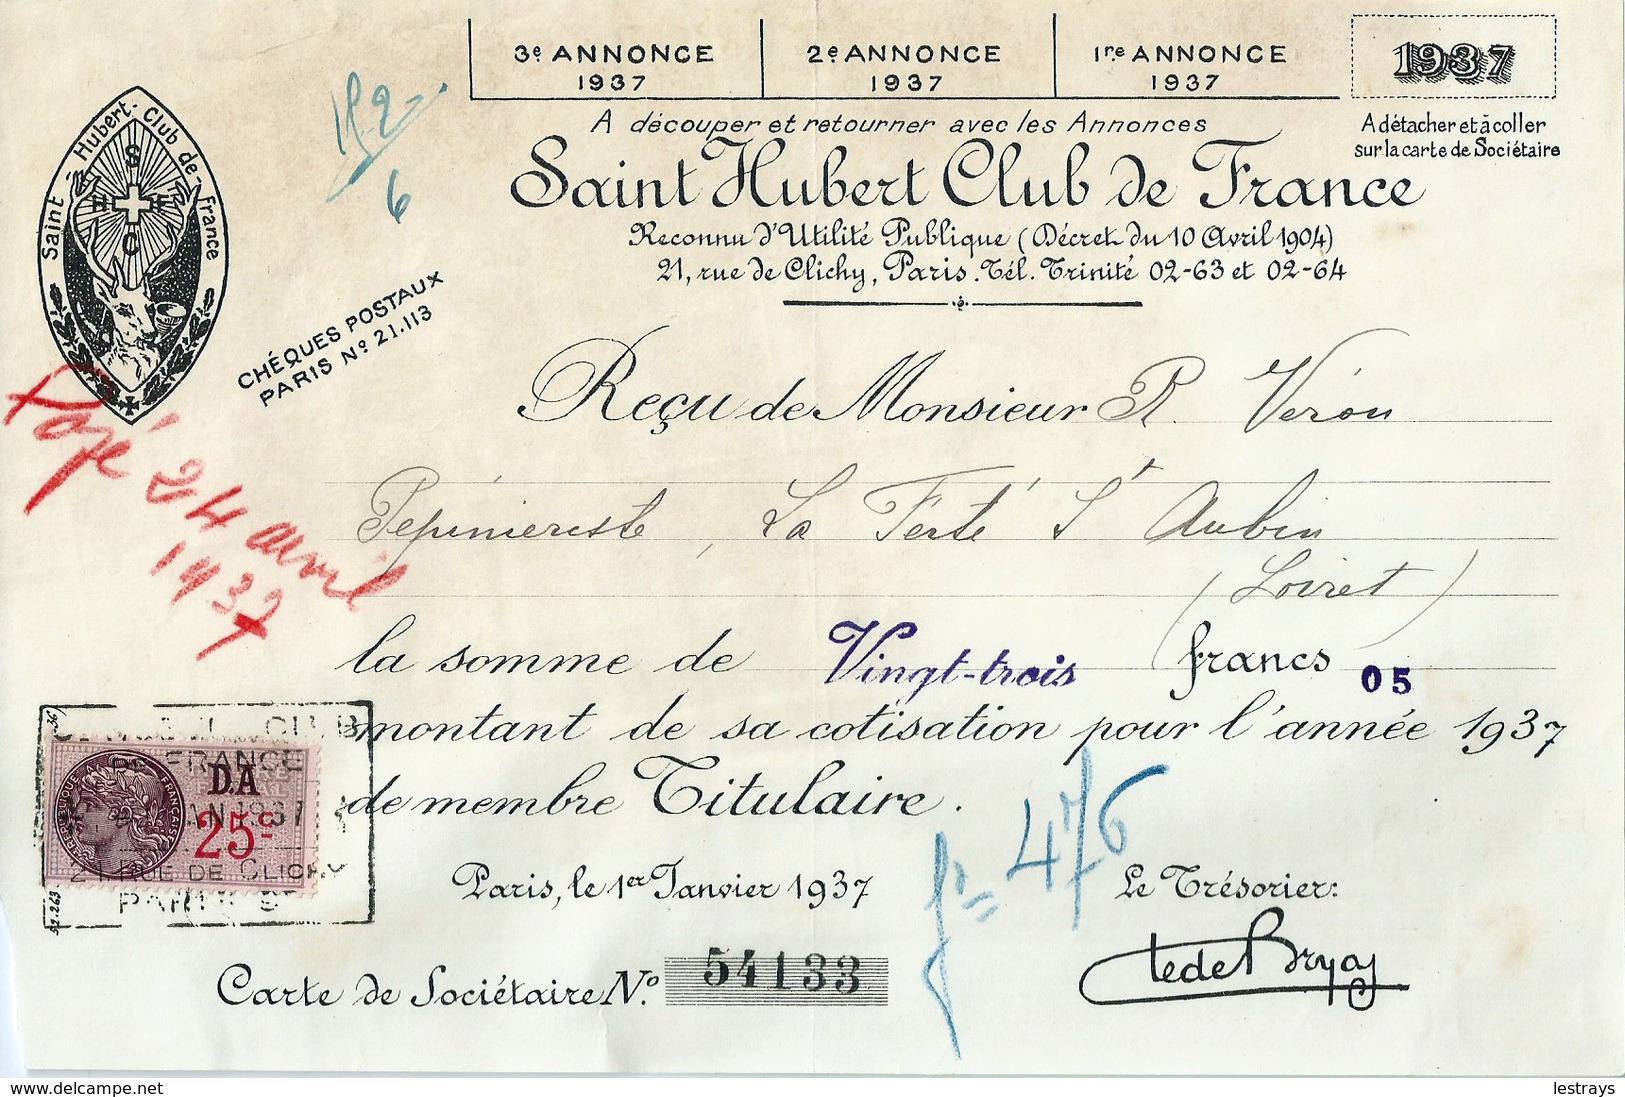 3e ANNONCE
1937
2e ANNONCE
1937
1re ANNONCE
1937
1937
A découper et retourner avec les Annonces
A détacher et à coller
sur la carte de Sociétaire
Saint-Hubert-Club de France
S
H F
C
6
Saint Hubert Club de France
Reconnu d'Utilité Publique (Décret du 10 Avril 1904)
21, rue de Clichy, Paris. Tél. Trinité 02-63 et 02-64
CHÉQUES POSTAUX
PARIS No 21.113
Reçu de Monsieur R Véron
Pépinieriste, La Ferté St Aubin
(Loiret)
Payé 24 avril
1937
la somme de Vingt-trois francs 05
montant de sa cotisation pour l'année 1937
de membre Titulaire.
DE FRANCE
RÉPUBLIQUE FRANÇAISE
D.A
25c
21 RUE DE CLICHY
PARIS
476
Paris, le 1er Janvier 1937
Le Trésorier:
Carte de Sociétaire No. 54133
delcampe.net
lestrays